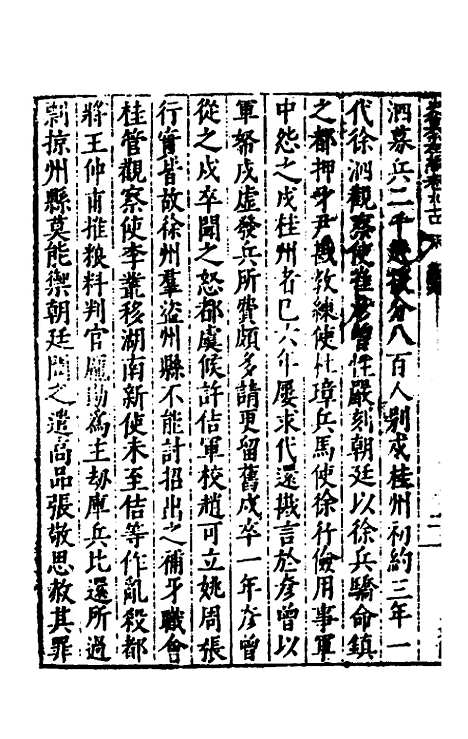 泗募兵二千赴援分八百人別戍桂州初約三年一
代徐泗觀察使崔彥曾性嚴刻朝廷以徐兵驕命鎮
之都押牙尹戡教練使杜璋兵馬使徐行儉用事軍
中怨之戍桂州者巳六年屢求代還戡言於彥曾以
軍帑戍虛發兵所費頗多請更留舊戍卒一年彥曾
從之戍卒聞之怒都虞候許佶軍校趙可立姚周張
行實皆故徐州羣盜州縣不能討招出之補牙職會
桂管觀察使李叢移湖南新使未至佶等作亂殺都
將王仲甫推粮料判官龐勛爲主劫庫兵北還所過
剽掠州縣莫能禦朝廷聞之遣高品張敬思赦其罪